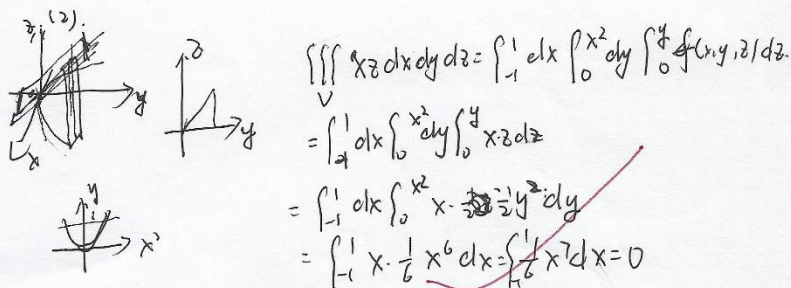 (2).
z
y
x
z
y
y
1
x
∭_V xz dx dy dz = ∫_{-1}^{1} dx ∫_0^{x²} dy ∫_0^y f(x,y,z) dz.
= ∫_{-1}^{1} dx ∫_0^{x²} dy ∫_0^y x·z dz
= ∫_{-1}^{1} dx ∫_0^{x²} x · ½y² dy
= ∫_{-1}^{1} x · 1/6 x⁶ dx = ∫_{-1}^{1} 1/6 x⁷ dx = 0